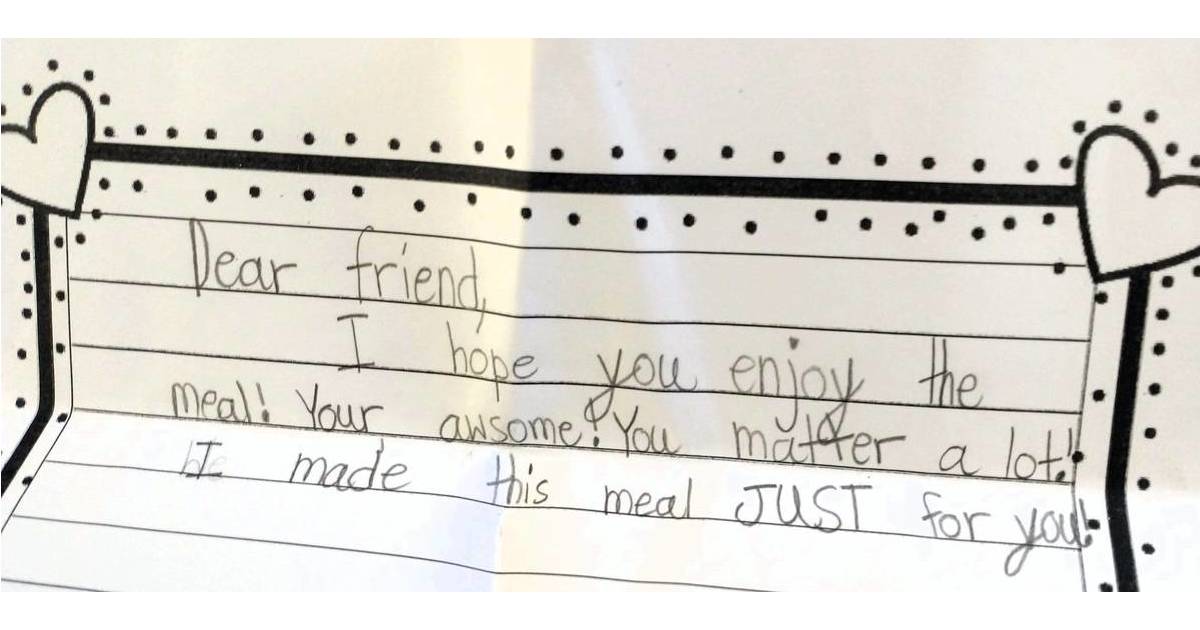 Dear friend,
I hope you enjoy the
meal! Your awsome! You matter a lot!
I made this meal JUST for you!